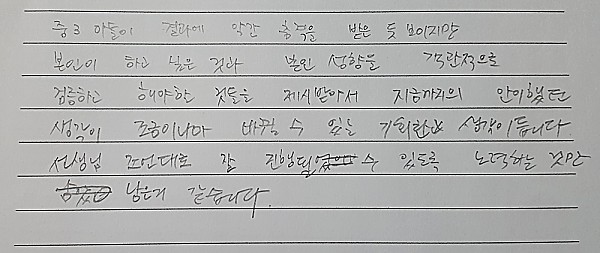 중3 아들이 결과에 약간 충격을 받은 듯 보이지만
본인이 하고 싶은 것과 본인 성향을 객관적으로
검증하고 해야한 것들을 제시받아서 지금까지의 안이했던
생각이 조금이나마 바뀔 수 있는 기회란 생각이 듭니다.
선생님 조언대로 잘 진행될 수 있도록 노력하는 것만
남은거 같습니다.